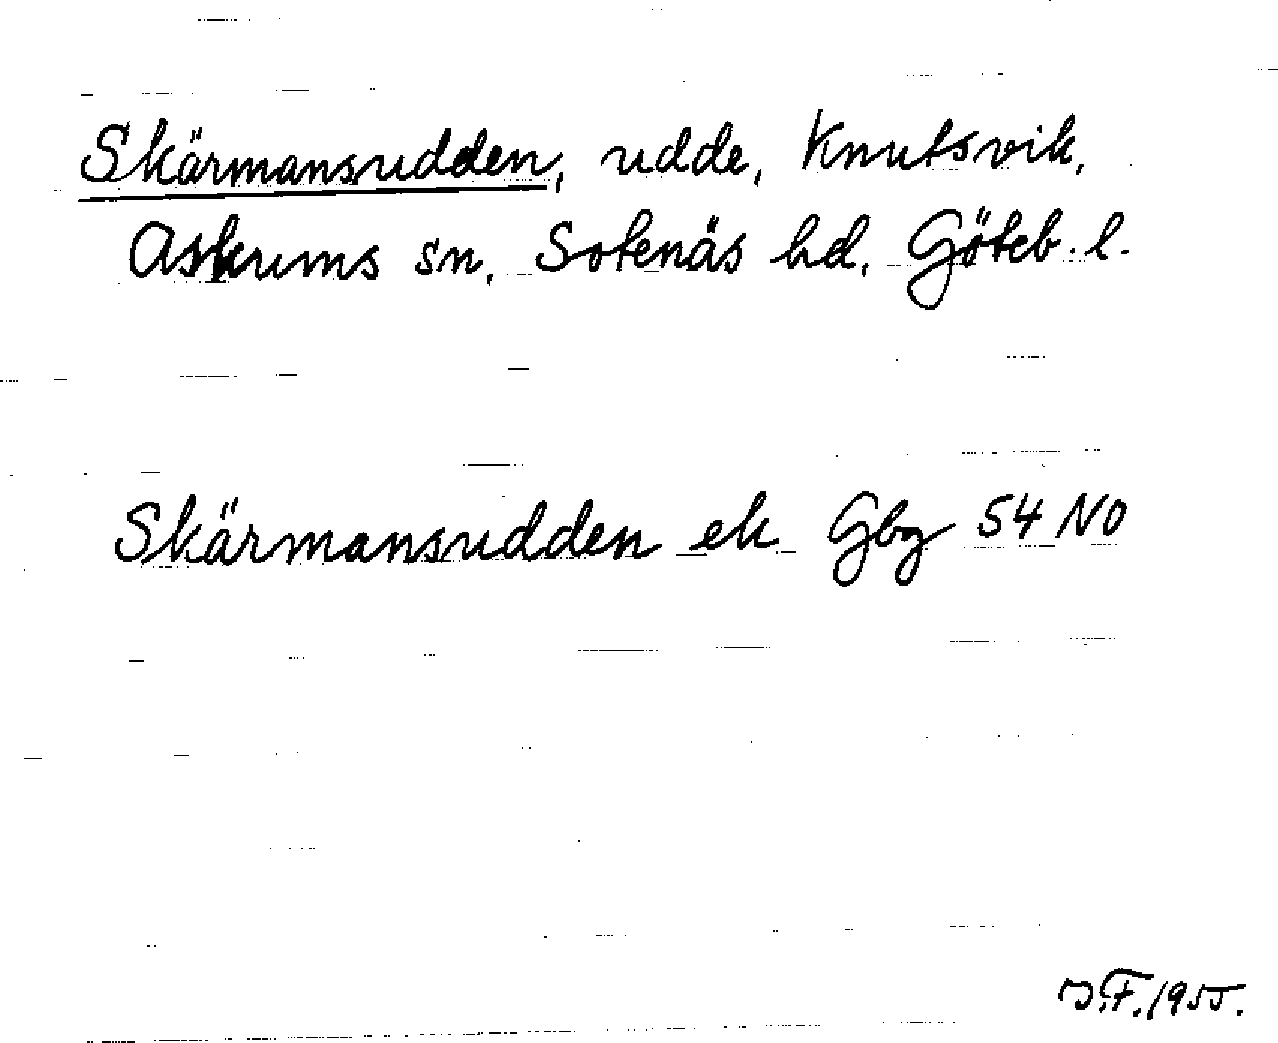 Skärmansudden, udde, Knutsvik,
Askums sn, Sotenäs hd, Göteb. l.
Skärmansudden ek Gbg 54 NO
J.F. 1955.